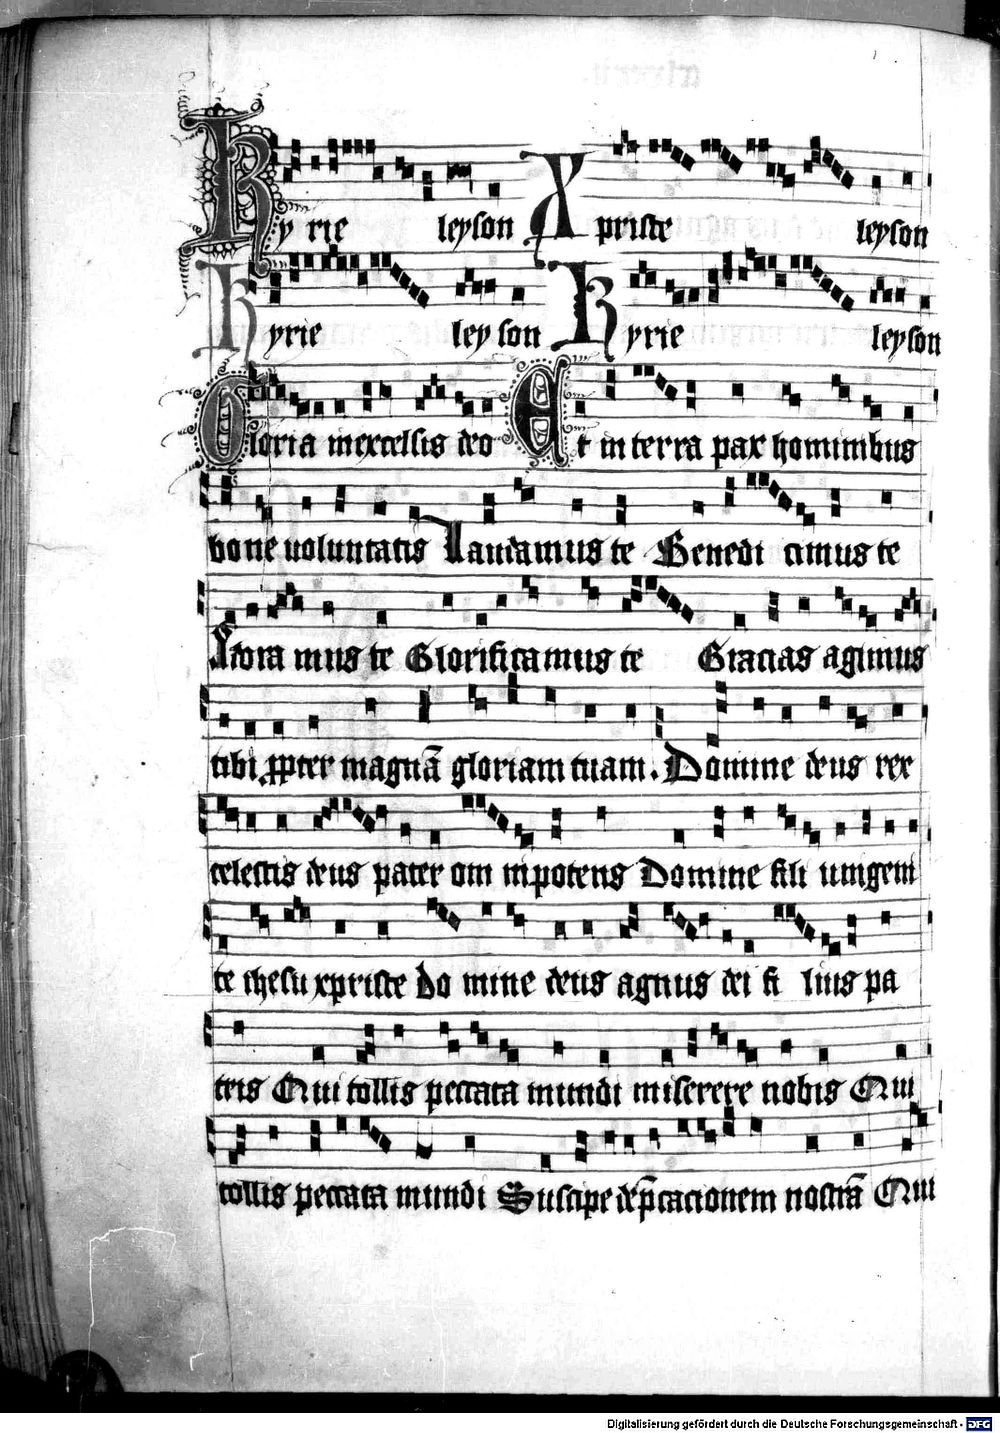 Kyrie leyson Xpriste leyson
Kyrie ley son Kyrie leyson
Gloria inexcelsis deo Et in terra pax hominibus
bone uoluntatis Laudamus te Benedi cimus te
Adora mus te Glorificamus te Gracias agimus
tibi ꝓpter magnā gloriam tuam. Domine deus rex
celestis deus pater om nipotens Domine fili unigeni
te ihesu xpriste do mine deus agnus dei fi lius pa
tris Qui tollis peccata mundi miserere nobis Qui
tollis peccata mundi Suscipe dep̄cacionem nostrā Qui
Digitalisierung gefördert durch die Deutsche Forschungsgemeinschaft - DFG